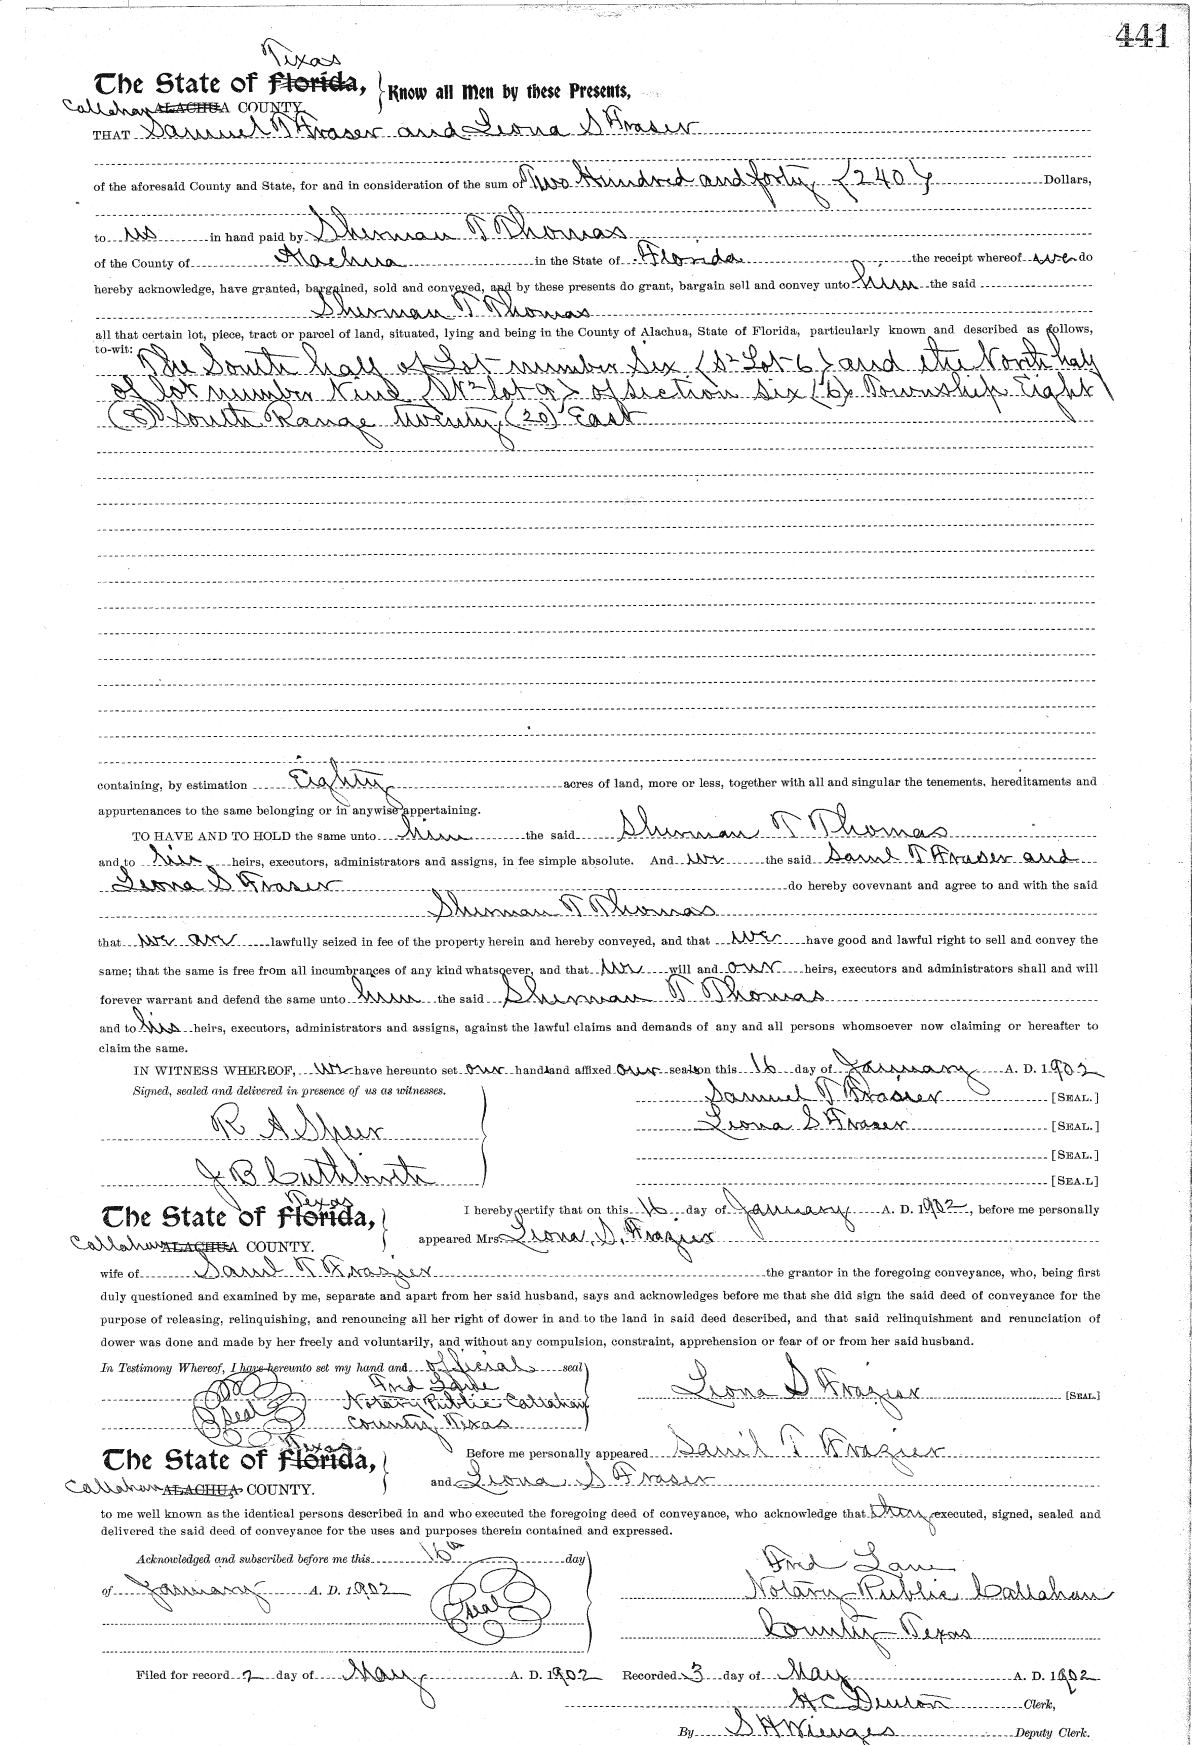 441
Texas
The State of Florida, Know all Men by these Presents,
Callahan ALACHUA COUNTY.
THAT Samuel T Fraser and Leona S Fraser
of the aforesaid County and State, for and in consideration of the sum of Two Hundred and forty {240} Dollars,
to us in hand paid by Sherman T Thomas
of the County of Alachua in the State of Florida the receipt whereof we do
hereby acknowledge, have granted, bargained, sold and conveyed, and by these presents do grant, bargain sell and convey unto him the said
Sherman T Thomas
all that certain lot, piece, tract or parcel of land, situated, lying and being in the County of Alachua, State of Florida, particularly known and described as follows,
to-wit: The South half of Lot number Six (S2 Lot 6) and the North half
of lot number Nine (N2 lot 9) of section six (6) Township Eight
(8) South Range twenty (20) East
containing, by estimation Eighty acres of land, more or less, together with all and singular the tenements, hereditaments and
appurtenances to the same belonging or in anywise appertaining.
TO HAVE AND TO HOLD the same unto him the said Sherman T Thomas
and to his heirs, executors, administrators and assigns, in fee simple absolute. And we the said Saml T Fraser and
Leona S Fraser do hereby covevnant and agree to and with the said
Sherman T Thomas
that we are lawfully seized in fee of the property herein and hereby conveyed, and that we have good and lawful right to sell and convey the
same; that the same is free from all incumbrances of any kind whatsoever, and that we will and our heirs, executors and administrators shall and will
forever warrant and defend the same unto him the said Sherman T Thomas
and to his heirs, executors, administrators and assigns, against the lawful claims and demands of any and all persons whomsoever now claiming or hereafter to
claim the same.
IN WITNESS WHEREOF, we have hereunto set our hand and affixed our seals on this 16 day of January A. D. 1902
Signed, sealed and delivered in presence of us as witnesses.
Samuel T Frasier [SEAL.]
R A Speer
Leona S Fraser [SEAL.]
[SEAL.]
J B Cuthbirth
[SEA.L]
Texas
The State of Florida, I hereby certify that on this 16 day of January A. D. 1902, before me personally
Callahan ALACHUA COUNTY. appeared Mrs. Leona S. Frazier
wife of Saml T Frazier the grantor in the foregoing conveyance, who, being first
duly questioned and examined by me, separate and apart from her said husband, says and acknowledges before me that she did sign the said deed of conveyance for the
purpose of releasing, relinquishing, and renouncing all her right of dower in and to the land in said deed described, and that said relinquishment and renunciation of
dower was done and made by her freely and voluntarily, and without any compulsion, constraint, apprehension or fear of or from her said husband.
In Testimony Whereof, I have hereunto set my hand and official seal
Fred Lane
Leona S Frazier [SEAL.]
Seal
Notary Public Callahan
County Texas
Texas
The State of Florida, Before me personally appeared Saml T Frazier
Callahan ALACHUA COUNTY. and Leona S Fraser
to me well known as the identical persons described in and who executed the foregoing deed of conveyance, who acknowledge that they executed, signed, sealed and
delivered the said deed of conveyance for the uses and purposes therein contained and expressed.
Acknowledged and subscribed before me this 16th day
of January A. D. 1902
Seal
Fred Lane
Notary Public Callahan
County Texas
Filed for record 2 day of May A. D. 1902 Recorded 3 day of May A. D. 1902
H C Denton Clerk,
By S H Wienges Deputy Clerk.